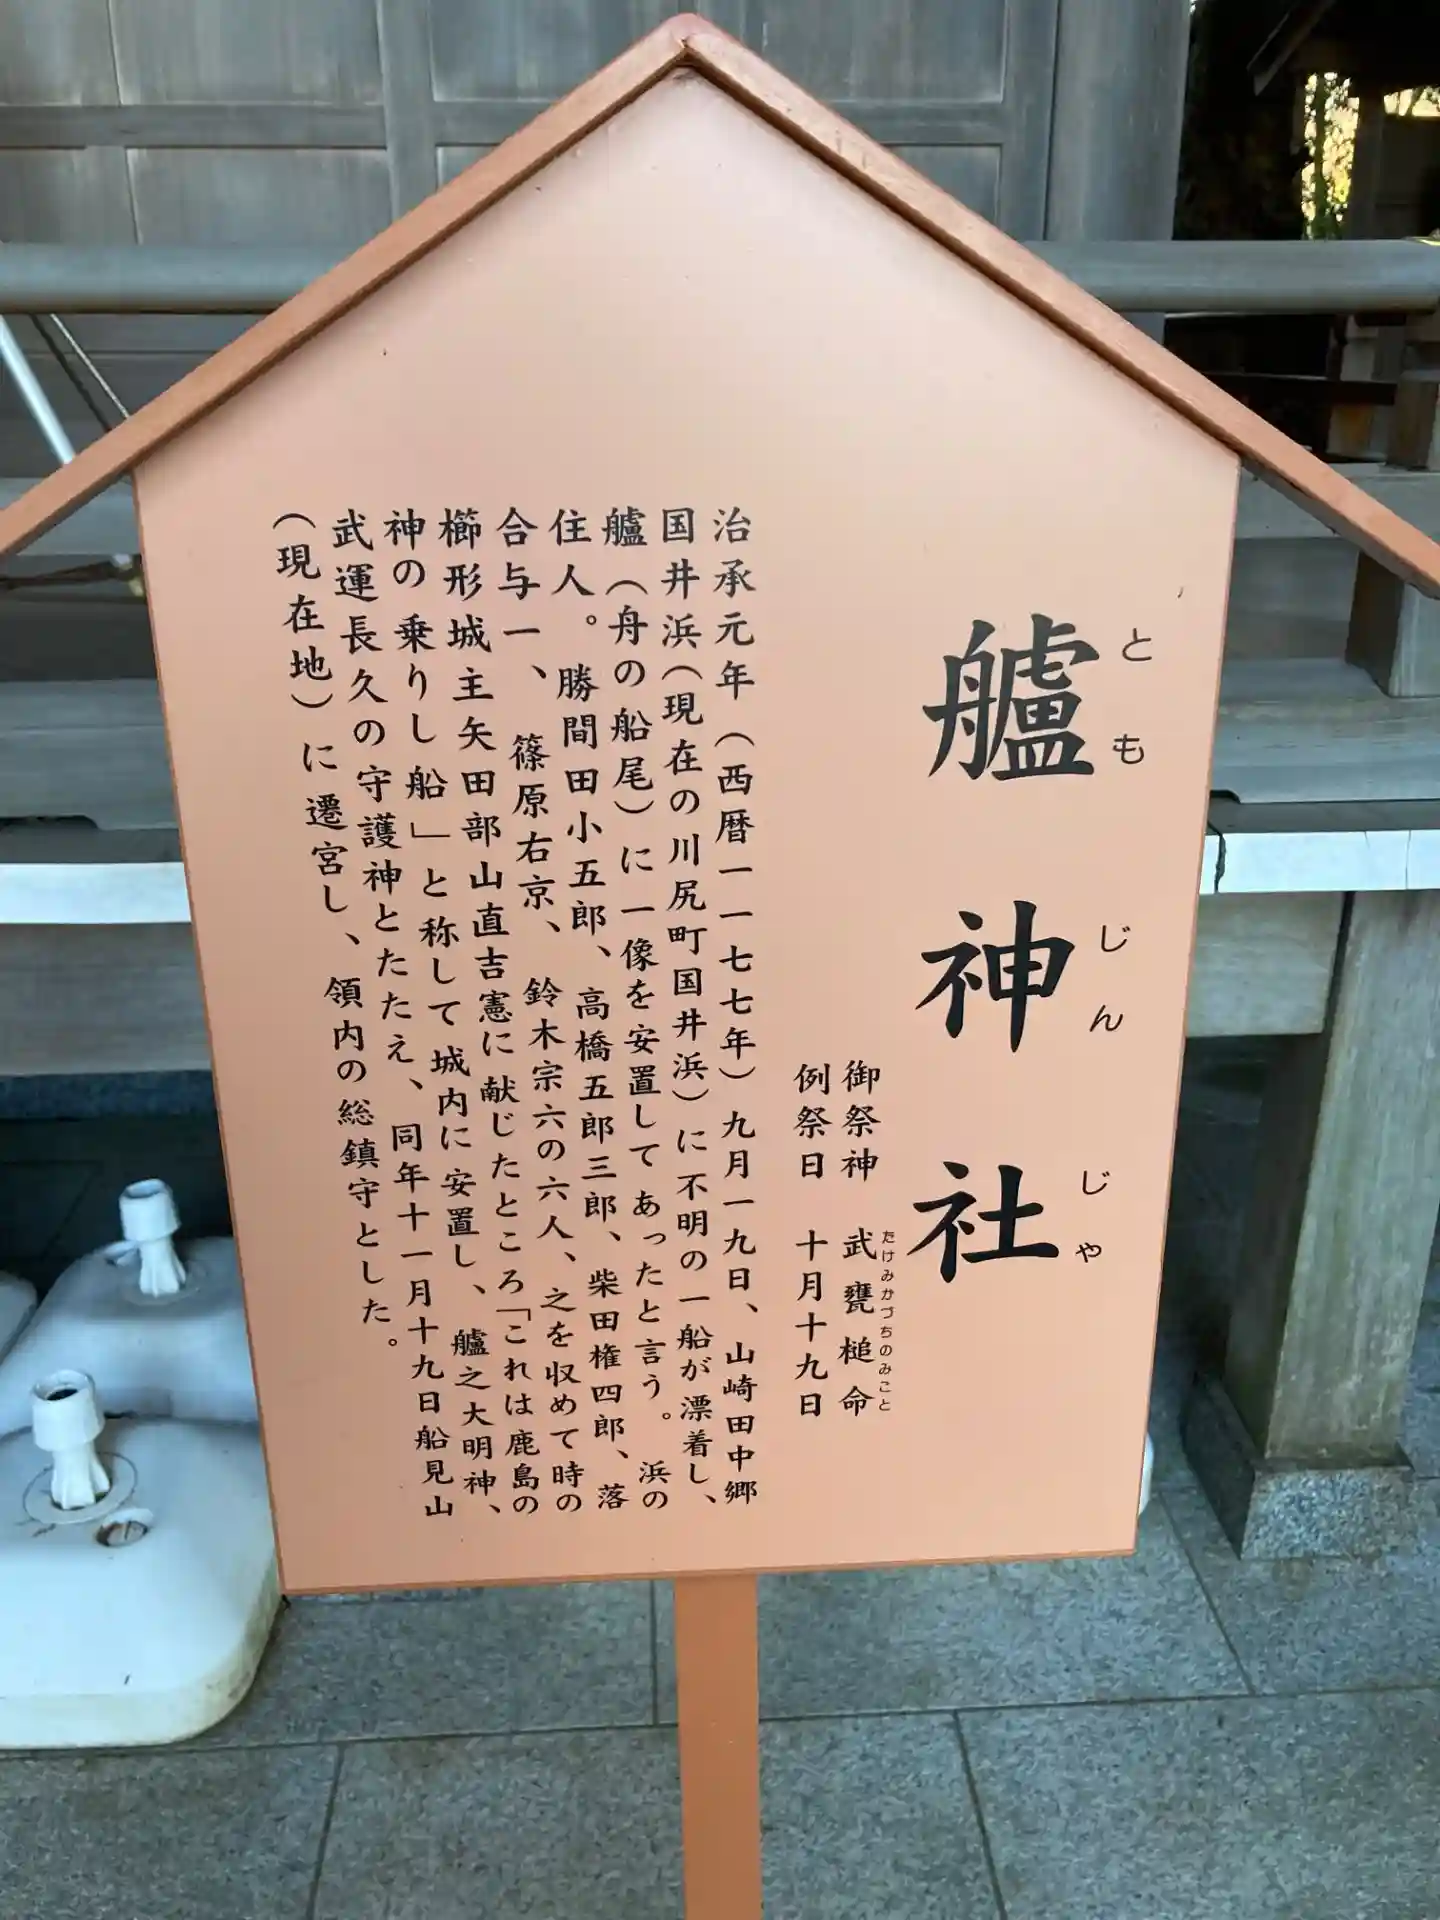 艫神社
ともじんじゃ
御祭神 武甕槌命
たけみかづちのみこと
例祭日 十月十九日
治承元年（西暦一一七七年）九月一九日、山崎田中郷
国井浜（現在の川尻町国井浜）に不明の一船が漂着し、
艫（舟の船尾）に一像を安置してあったと言う。浜の
住人。勝間田小五郎、高橋五郎三郎、柴田権四郎、落
合与一、篠原右京、鈴木宗六の六人、之を収めて時の
櫛形城主矢田部山直吉憲に献じたところ「これは鹿島の
神の乗りし船」と称して城内に安置し、艫之大明神、
武運長久の守護神とたたえ、同年十一月十九日船見山
（現在地）に遷宮し、領内の総鎮守とした。